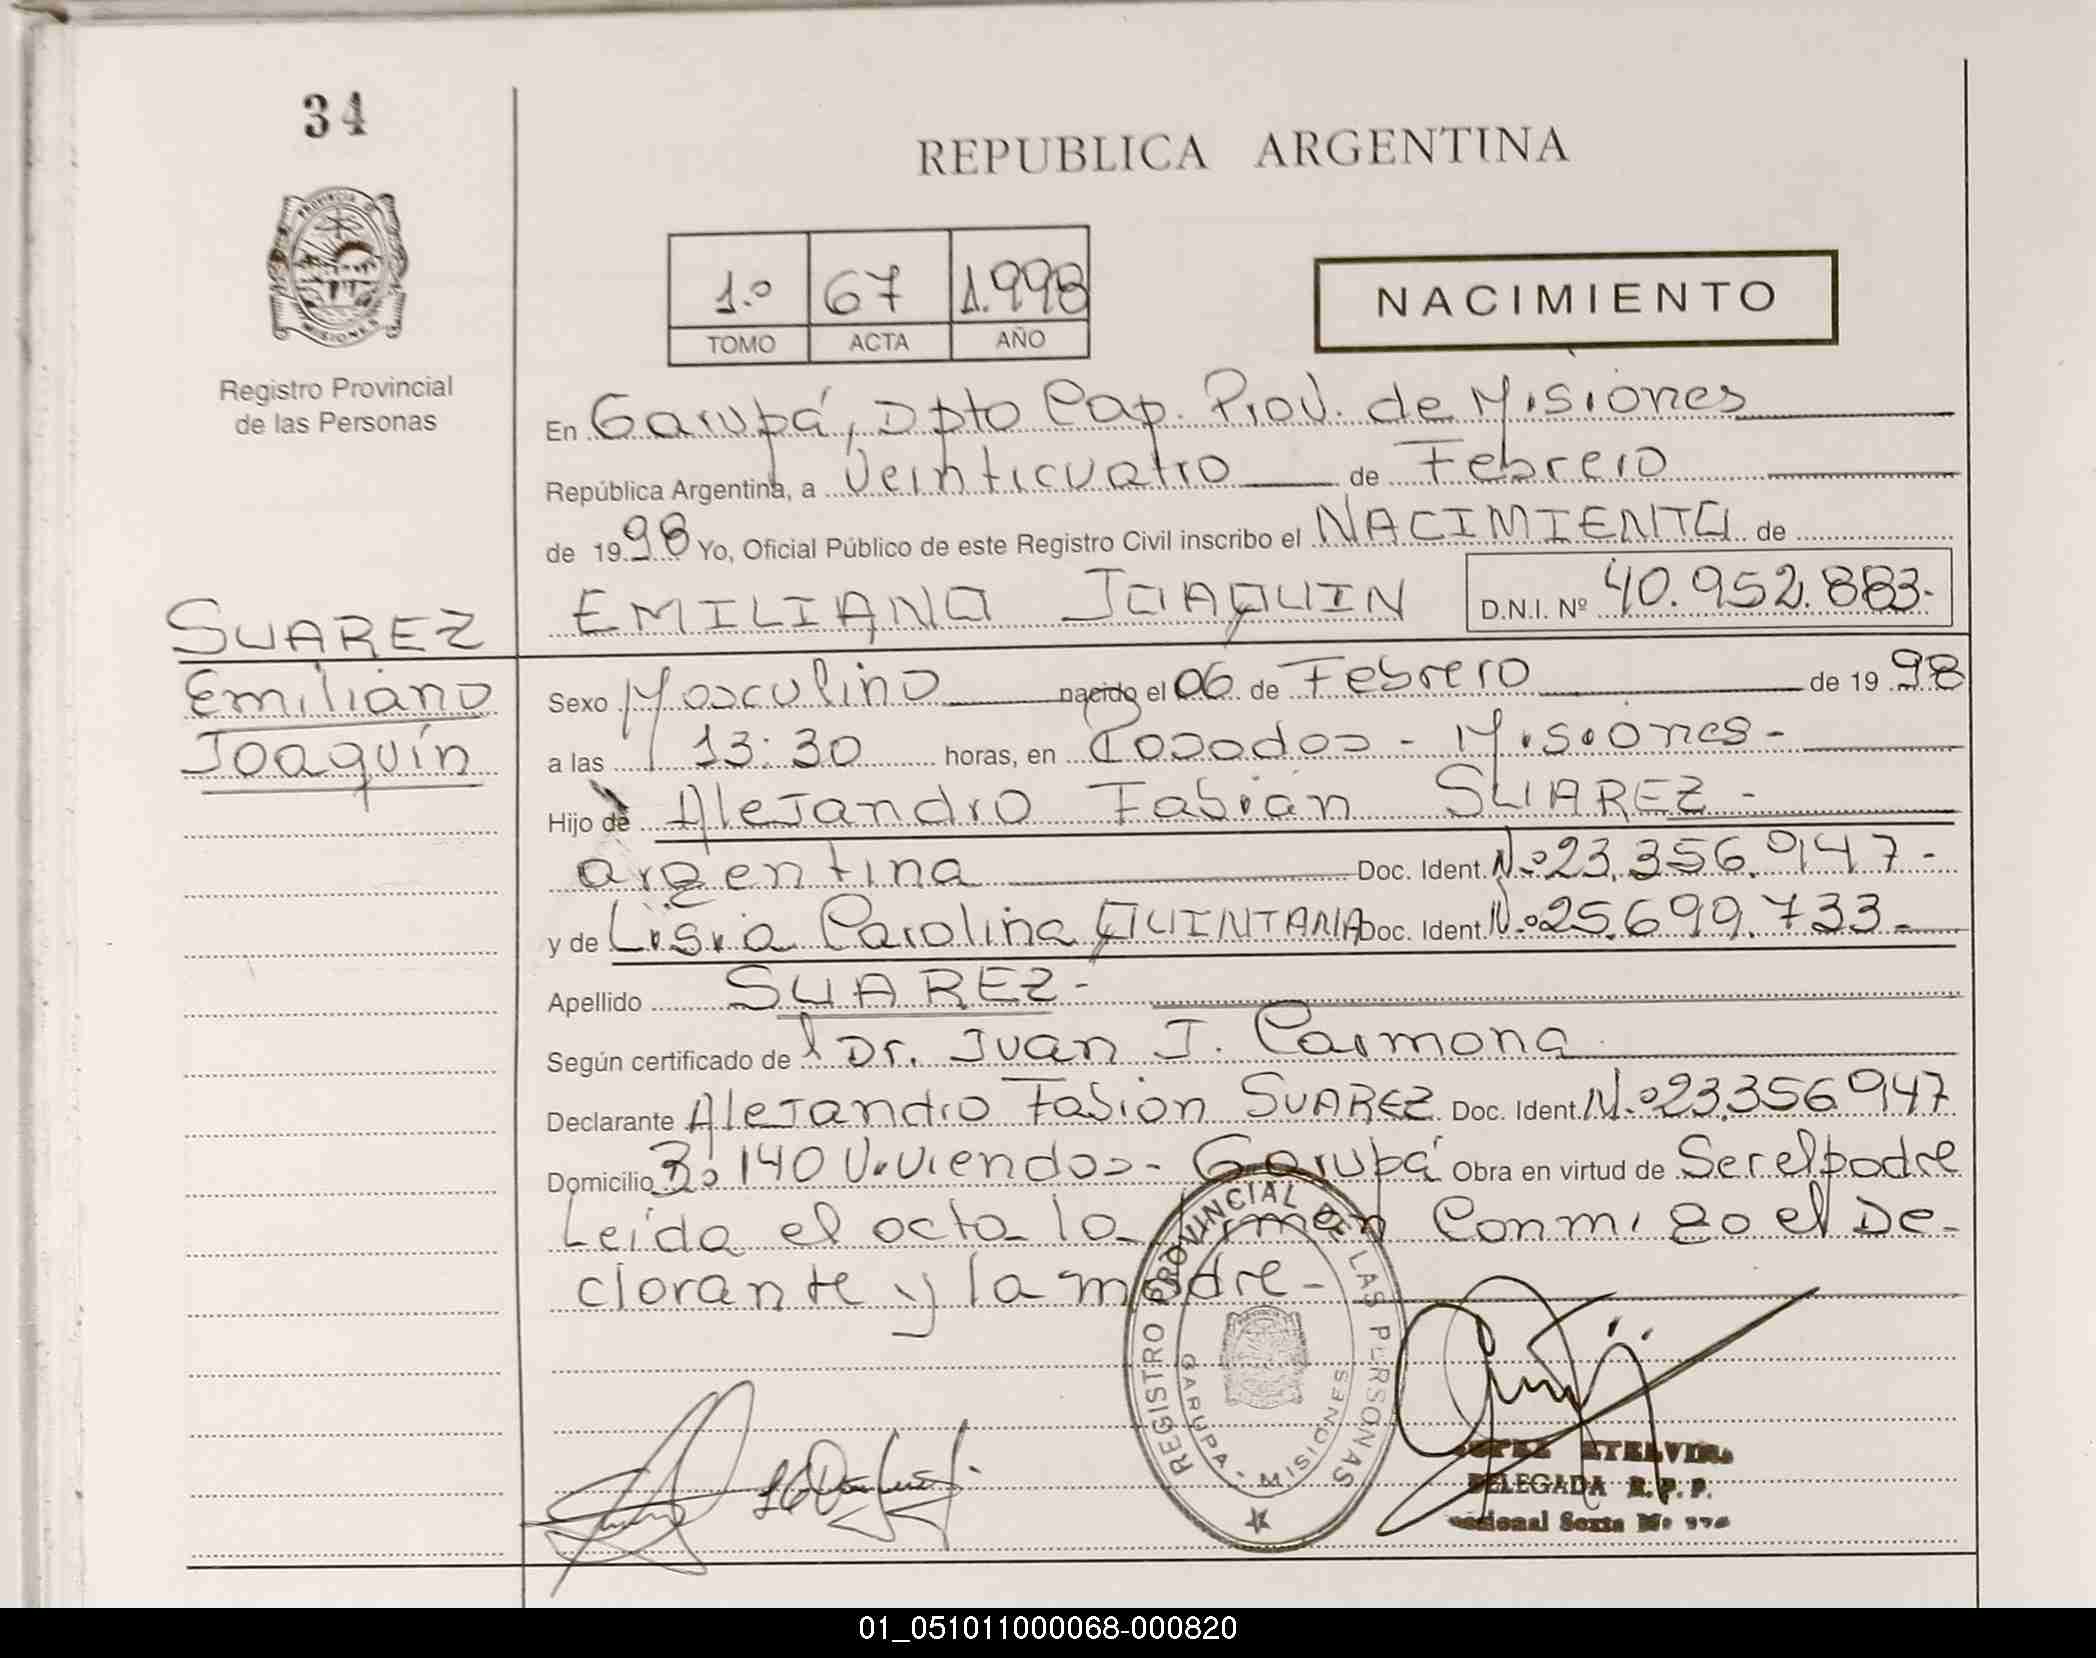 34
REPUBLICA ARGENTINA
PROVINCIA D
MISIONES
1.º 67 1.998
TOMO ACTA AÑO
NACIMIENTO
Registro Provincial
de las Personas
En Garupá, Dpto Cap. Prov. de Misiones
República Argentina, a Veinticuatro de Febrero
de 1998 Yo, Oficial Público de este Registro Civil inscribo el NACIMIENTO de
EMILIANO JOAQUIN D.N.I. Nº 40.952.883.-
SUAREZ
Emiliano
Joaquín
Sexo Masculino nacido el 06 de Febrero de 1998
a las 13:30 horas, en Posadas - Misiones -
Hijo de Alejandro Fabián SUAREZ -
argentina Doc. Ident. N.º 23.356.947 -
y de Ligia Carolina QUINTANA Doc. Ident. N.º 25.699.733.-
Apellido SUAREZ -
Según certificado de l Dr. Juan J. Carmona
Declarante Alejandro Fabián SUAREZ Doc. Ident. N.º 23.356947
Domicilio Bº 140 Viviendas - Garupá Obra en virtud de Ser el padre
Leída el acta la firman Conmigo el De-
clarante y la madre -
REGISTRO PROVINCIAL DE LAS PERSONAS
GARUPA - MISIONES
ETELVINA
DELEGADA R. P. P.
Sexta Nº
01_051011000068-000820